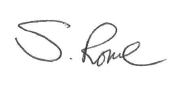 S. Rome